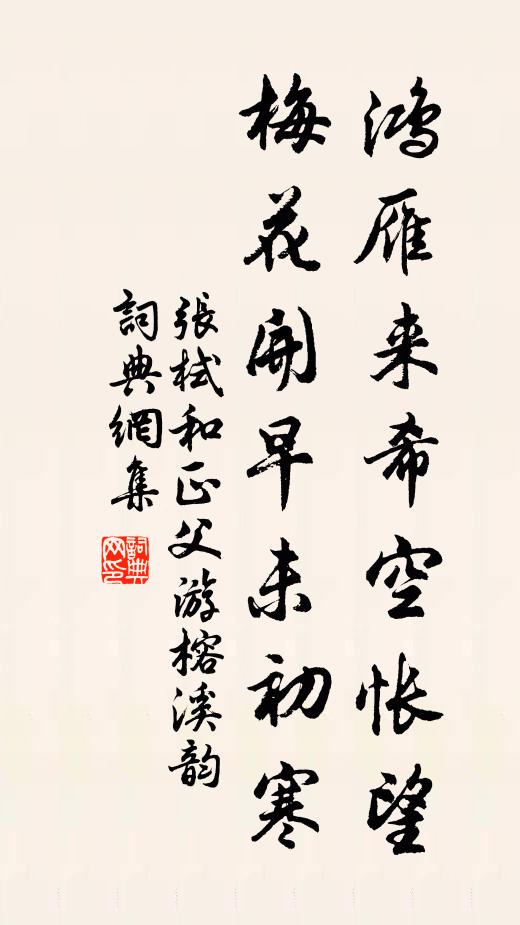 鸿雁来希空怅望
梅花開早未初寒
張栻和正父游榕溪韵
詞典網集
詞典
网印